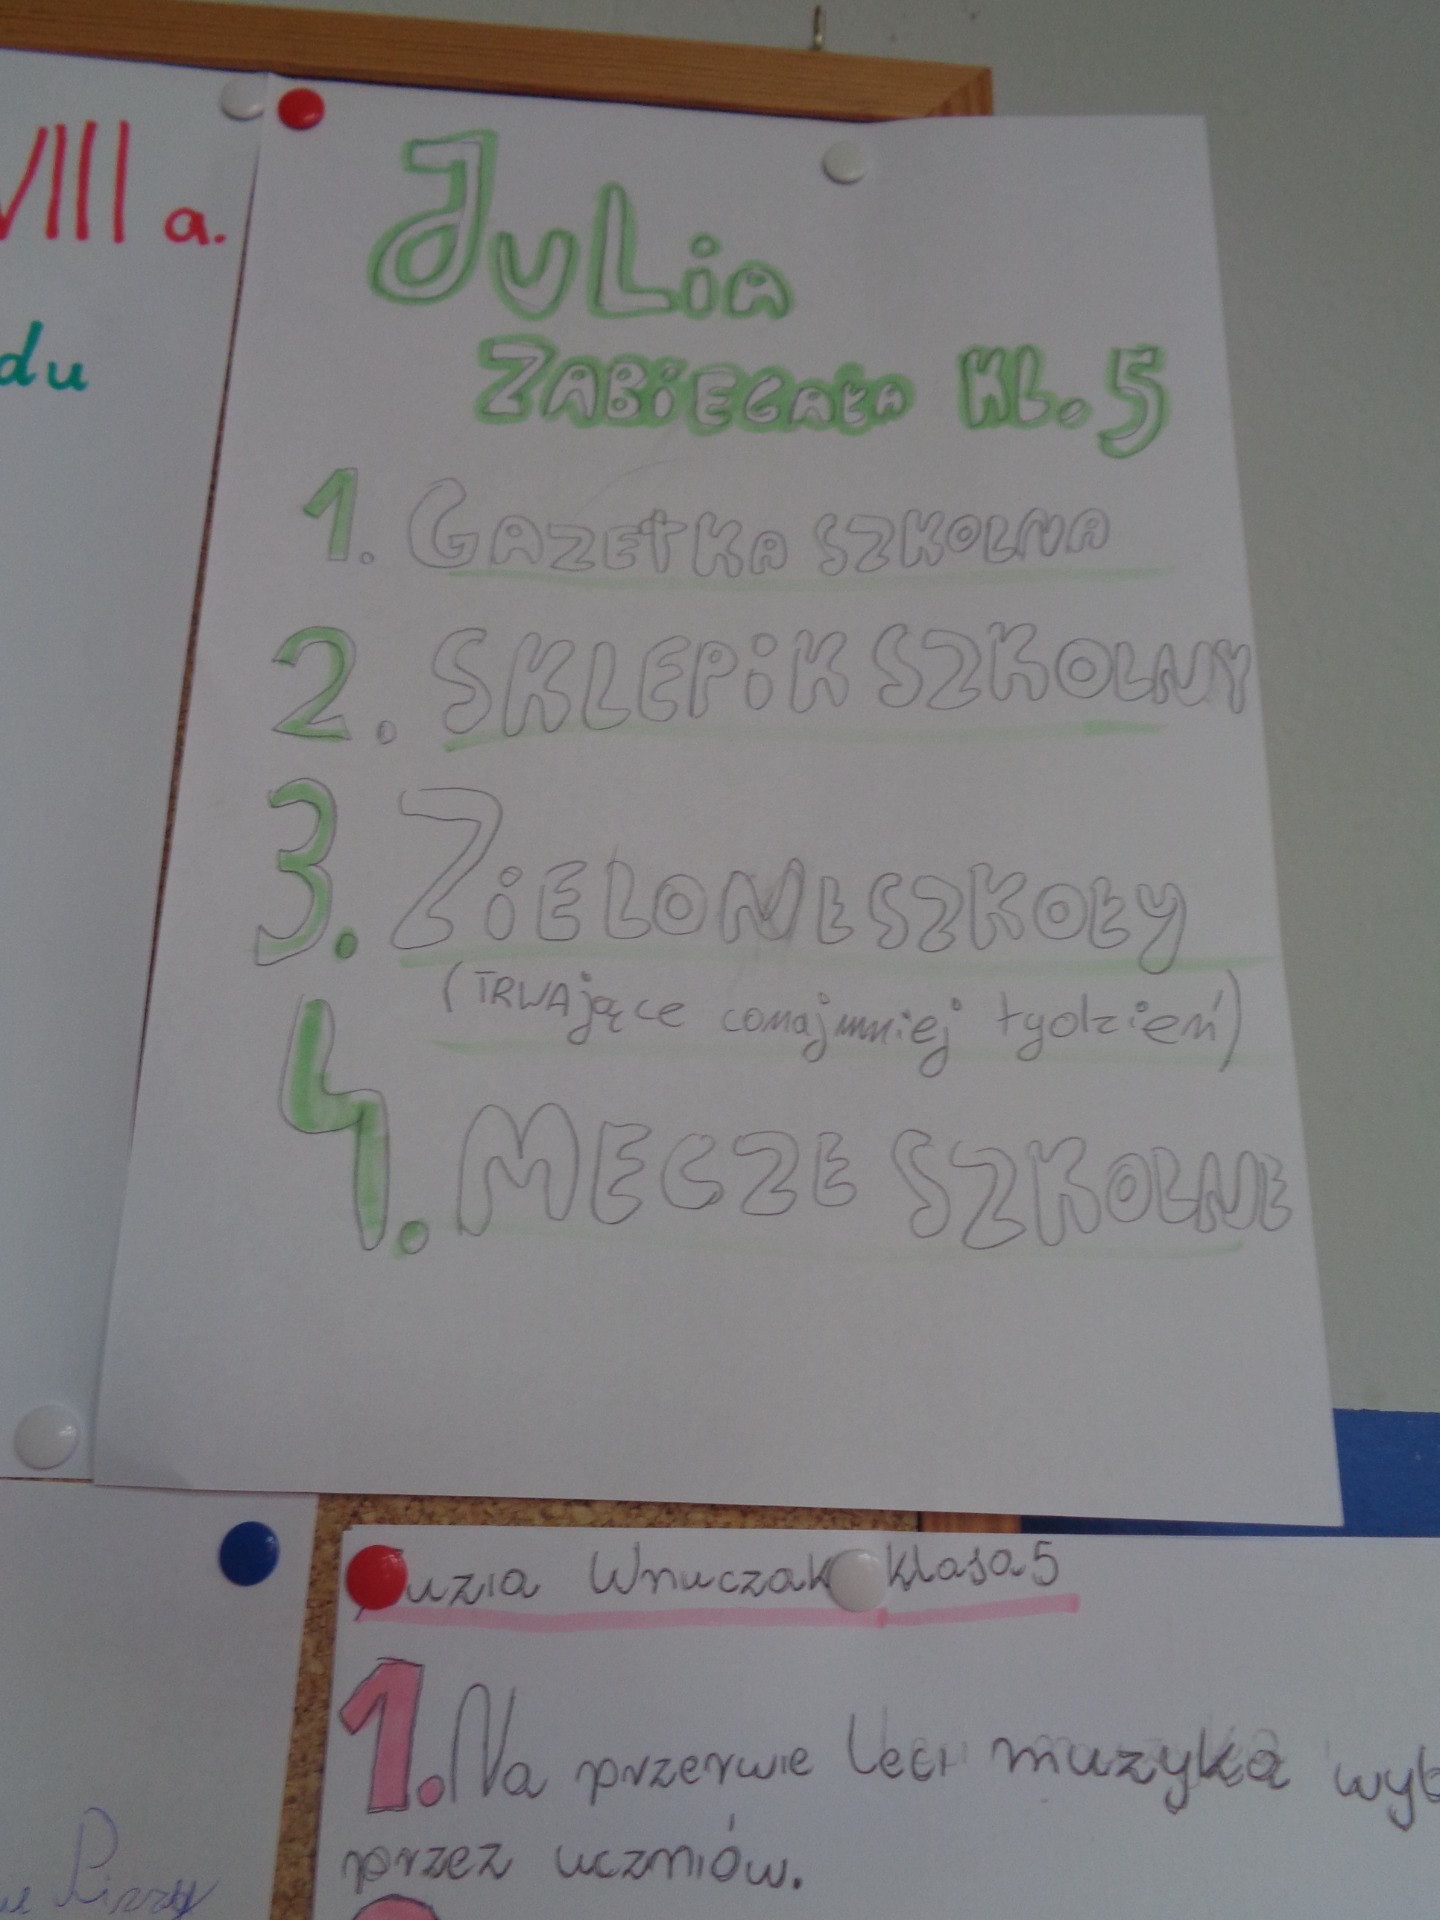 VIII a.
du
JULiA
ZABiEGAŁA KL. 5
1. GAZETKA SZKOLNA
2. SKLEPiK SZKOLNY
3. ZiELONE SZKOŁY
(TRWAjące conajmniej tydzień)
4. MECZE SZKOLNE
uzia Wnuczak klasa 5
1. Na przerwie leci muzyka wyb
przez uczniów.
Pizzy